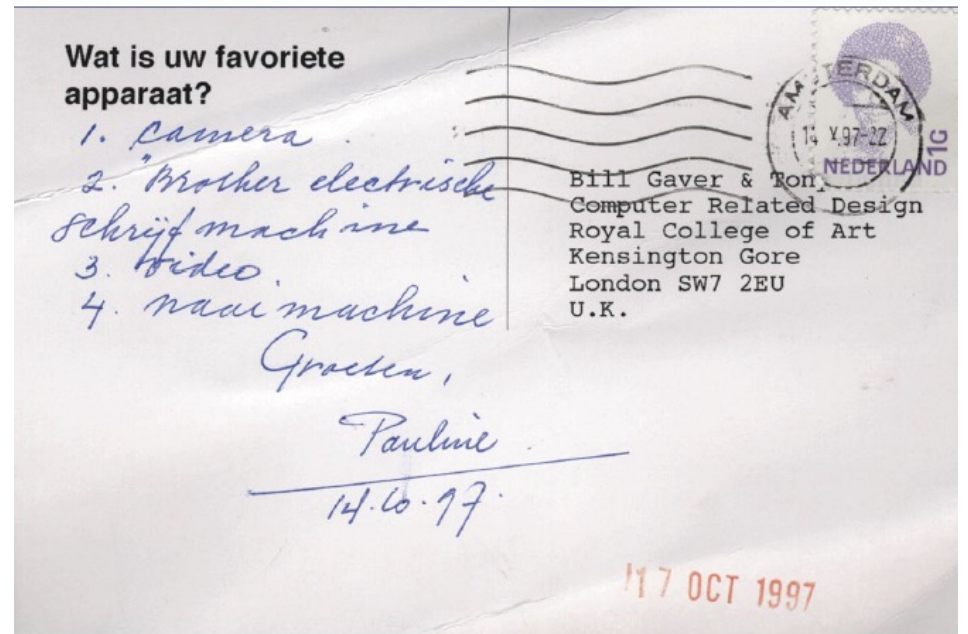 Wat is uw favoriete
apparaat?
1. Camera.
2. "Brother electrische
schrijfmachine
3. Video
4. naaimachine
Groeten,
Pauline.
14.10.97.
AMSTERDAM
14 X.97-22
NEDERLAND
1G
Bill Gaver & Ton
Computer Related Design
Royal College of Art
Kensington Gore
London SW7 2EU
U.K.
17 OCT 1997